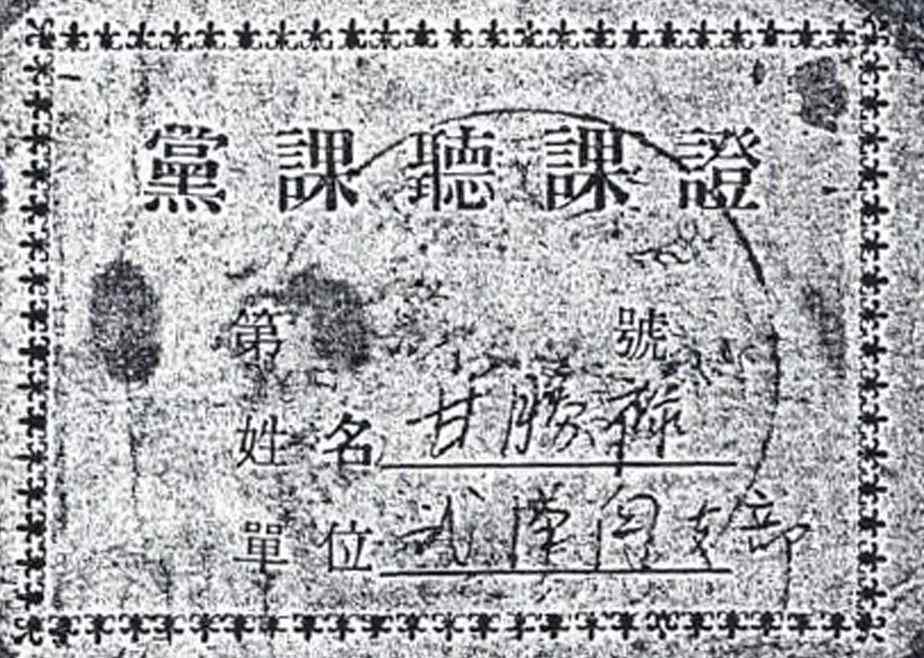 黨課聽課證
第 號
姓名 甘勝
單位 武漢 支部